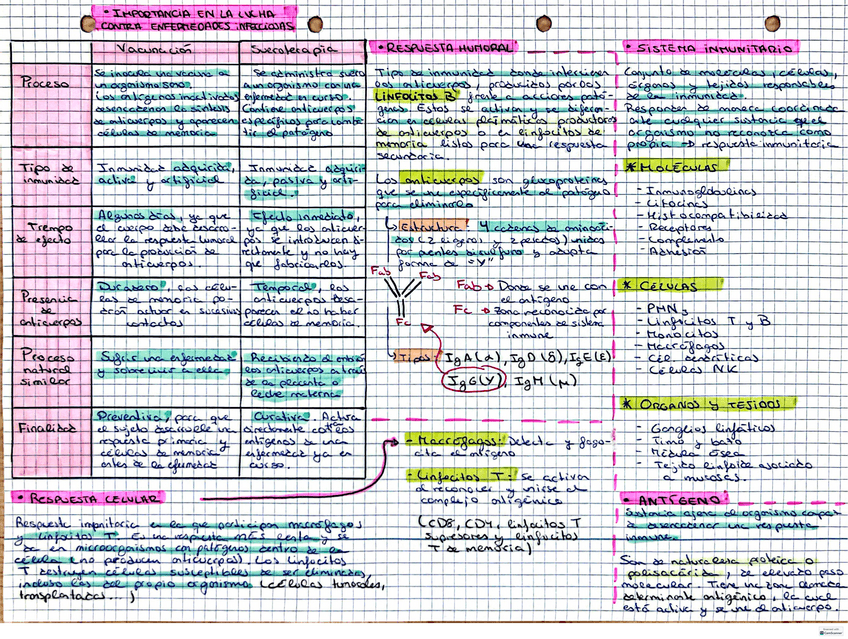 • IMPORTANCIA EN LA LUCHA
CONTRA ENFERMEDADES INFECCIOSAS
Vacunación
Sueroterapia
Proceso
Se inocula una vacuna a
un organismo sano.
Los antígenos inactivados
desencadenan la síntesis
de anticuerpos y aparecen
células de memoria
Se administra suero
a un organismo con una
enfermedad en curso.
Contiene anticuerpos
específicos para comba-
tir el patógeno
Tipo de
inmunidad
Inmunidad adquirida,
activa y artificial
Inmunidad adquiri-
da, pasiva y arti-
ficial.
Tiempo
de efecto
Algunos días, ya que
el cuerpo debe desarro-
llar la respuesta humoral
por la producción de
anticuerpos.
Efecto inmediato,
ya que los anticuer-
pos se introducen di-
rectamente y no hay
que fabricarlos.
Presencia
de
anticuerpos
Duradera, las célu-
las de memoria po-
drán actuar en sucesivos
contactos
Temporal, los
anticuerpos desa-
parecen al no haber
células de memoria.
Proceso
natural
similar
Sufrir una enfermedad
y sobrevivir a ella
Recibiendo el embrión
los anticuerpos a través
de la placenta o
leche materna
Finalidad
Preventiva, para que
el sujeto desarrolle una
respuesta primaria y
células de memoria
antes de la enfermedad
Curativa. Actúa
directamente contra los
antígenos de una
enfermedad ya en
curso.
• RESPUESTA CELULAR
Respuesta inmunitaria en la que participan macrófagos
y linfocitos T. Es una respuesta más lenta y se
da en microorganismos con patógenos dentro de la
célula (no producen anticuerpos). Los linfocitos
T destruyen células susceptibles de ser eliminadas
incluso las del propio organismo (células tumorales,
trasplantadas...)
• RESPUESTA HUMORAL
Tipo de inmunidad donde intervienen
los anticuerpos, producidos por los
LINFOCITOS B frente a
Éstos se activan y se diferen-
cian en células plasmáticas productoras
de anticuerpos o en linfocitos de
memoria listos para una respuesta
secundaria.
Los anticuerpos son glucoproteínas
que se unen específicamente al patógeno
para eliminarlo
Estructura: 4 cadenas de aminoáci-
dos (2 ligeras y 2 pesadas) unidos
por puentes bisulfuro y adopta
forma de "Y"
Fab
Fab
Fc
Fab → Donde se une con
el antígeno
Fc → Zona reconocida por
componentes de sistema
inmune
Tipos: IgA(α), IgD(δ), IgE(ε)
IgG(γ), IgM(μ)
- Macrófagos: Detecta y fago-
cita el antígeno
- Linfocitos T: Se activa
al reconocer y unirse al
complejo antigénico
(CD8, CD4, linfocitos T
supresores y linfocitos
T de memoria)
• SISTEMA INMUNITARIO
Conjunto de moléculas, células,
órganos y tejidos responsables
de la inmunidad.
Responden de manera coordinada
ante cualquier sustancia que el
organismo no reconozca como
propia → respuesta inmunitaria
* MOLÉCULAS
- Inmunoglobulinas
- Citocinas
- Histocompatibilidad
- Receptores
- Complemento
- Adhesión
* CÉLULAS
- PMNs
- Linfocitos T y B
- Monocitos
- Macrófagos
- Cél. dendríticas
- Células NK
* ÓRGANOS Y TEJIDOS
- Ganglios linfáticos
- Timo y bazo
- Médula ósea
- Tejido linfoide asociado
a mucosas.
• ANTÍGENO
Sustancia ajena al organismo capaz
de desencadenar una respuesta
inmune.
Son de naturaleza proteica o
polisacárida, de elevado peso
molecular. Tiene una zona llamada
determinante antigénico, la cual
está activa y se une al anticuerpo.
CamScanner